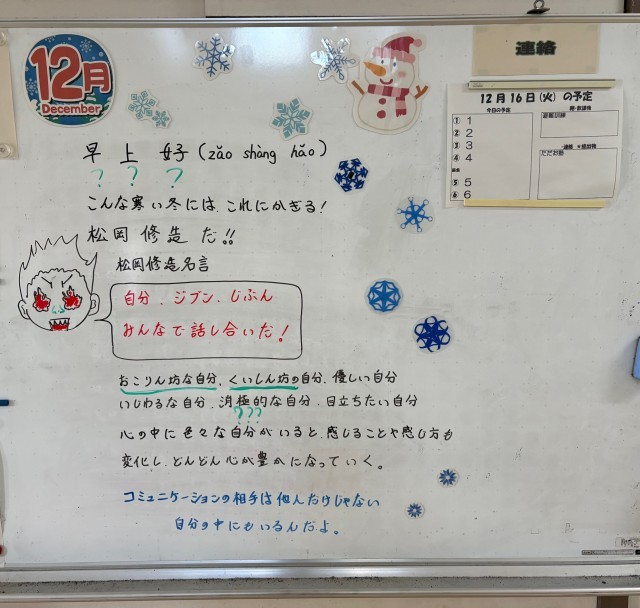 12月
December
連絡
12月16日(火)の予定
今日の予定
① 1
② 2
③ 3
④ 4
⑤ 5
⑥ 6
避難訓練
早上好(zǎo shàng hǎo)
? ? ?
こんな寒い冬には、これにかぎる!
松岡修造だ!!
松岡修造名言
自分、ジブン、じぶん
みんなで話し合いだ!
おこりん坊な自分、くいしん坊の自分、優しい自分
いじわるな自分、消極的な自分、目立ちたい自分
???
心の中に色々な自分がいると、感じることや感じ方も
変化し、どんどん心が豊かになっていく。
コミュニケーションの相手は他人だけじゃない
自分の中にもいるんだよ。